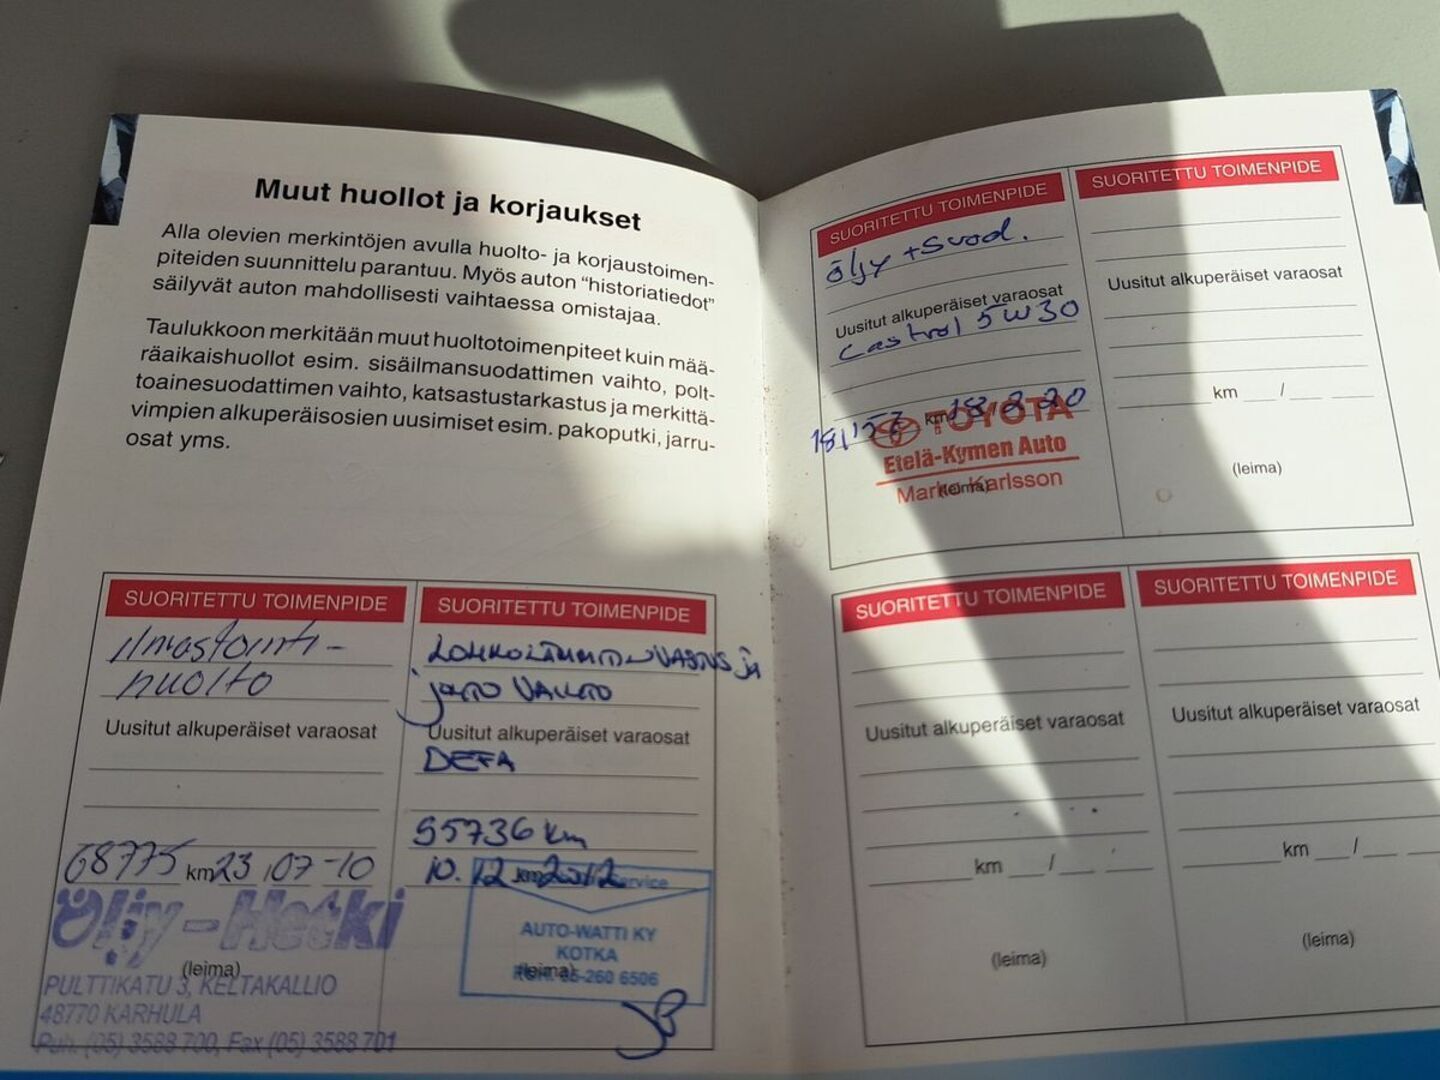 Muut huollot ja korjaukset
Alla olevien merkintöjen avulla huolto- ja korjaustoimen-
piteiden suunnittelu parantuu. Myös auton "historiatiedot"
säilyvät auton mahdollisesti vaihtaessa omistajaa.
Taulukkoon merkitään muut huoltotoimenpiteet kuin mää-
räaikaishuollot esim. sisäilmansuodattimen vaihto, polt-
toainesuodattimen vaihto, katsastustarkastus ja merkittä-
vimpien alkuperäisosien uusimiset esim. pakoputki, jarru-
osat yms.
SUORITETTU TOIMENPIDE
Ilmastointi-
huolto
Uusitut alkuperäiset varaosat
68775 km 23 / 07 -10
Öljy-Hetki
(leima)
PULTTIKATU 3, KELTAKALLIO
48770 KARHULA
Puh. (05) 3588 700, Fax (05) 3588 701
SUORITETTU TOIMENPIDE
LOHKOLÄMMITINVASTUS ja
johto VAIHTO
Uusitut alkuperäiset varaosat
DEFA
95736 km
10.12 km 2012
Service
AUTO-WATTI KY
KOTKA
(leima)
PUH. 05-260 6506
SUORITETTU TOIMENPIDE
öljy + suod.
Uusitut alkuperäiset varaosat
Castrol 5W30
181157 km 18.8.20
TOYOTA
Etelä-Kymen Auto
Marko Karlsson
(leima)
SUORITETTU TOIMENPIDE
Uusitut alkuperäiset varaosat
km /
(leima)
SUORITETTU TOIMENPIDE
Uusitut alkuperäiset varaosat
km /
(leima)
SUORITETTU TOIMENPIDE
Uusitut alkuperäiset varaosat
km /
(leima)